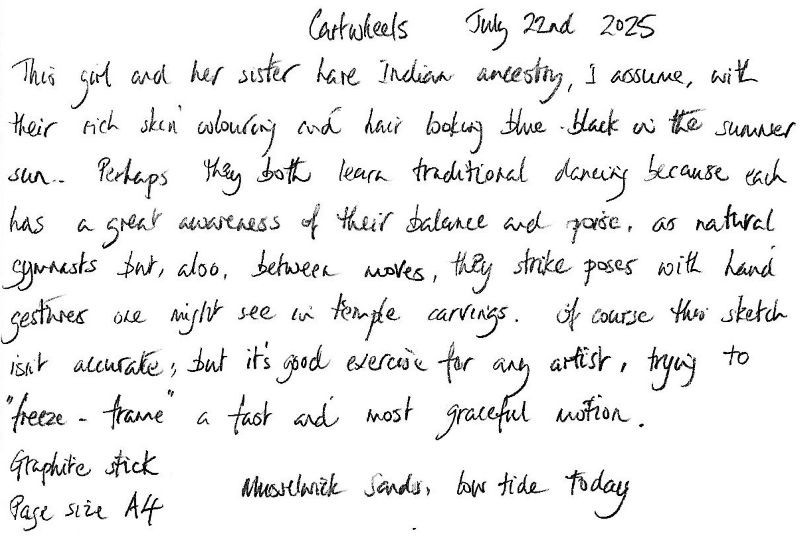 Cartwheels July 22nd 2025
This girl and her sister have Indian ancestry, I assume, with
their rich skin colouring and hair looking blue-black in the summer
sun.. Perhaps they both learn traditional dancing because each
has a great awareness of their balance and poise, as natural
gymnasts but, also, between moves, they strike poses with hand
gestures one might see in temple carvings. Of course this sketch
isn't accurate; but it's good exercise for any artist, trying to
"freeze-frame" a fast and most graceful motion.
Graphite stick
Musselwick Sands, low tide today
Page size A4